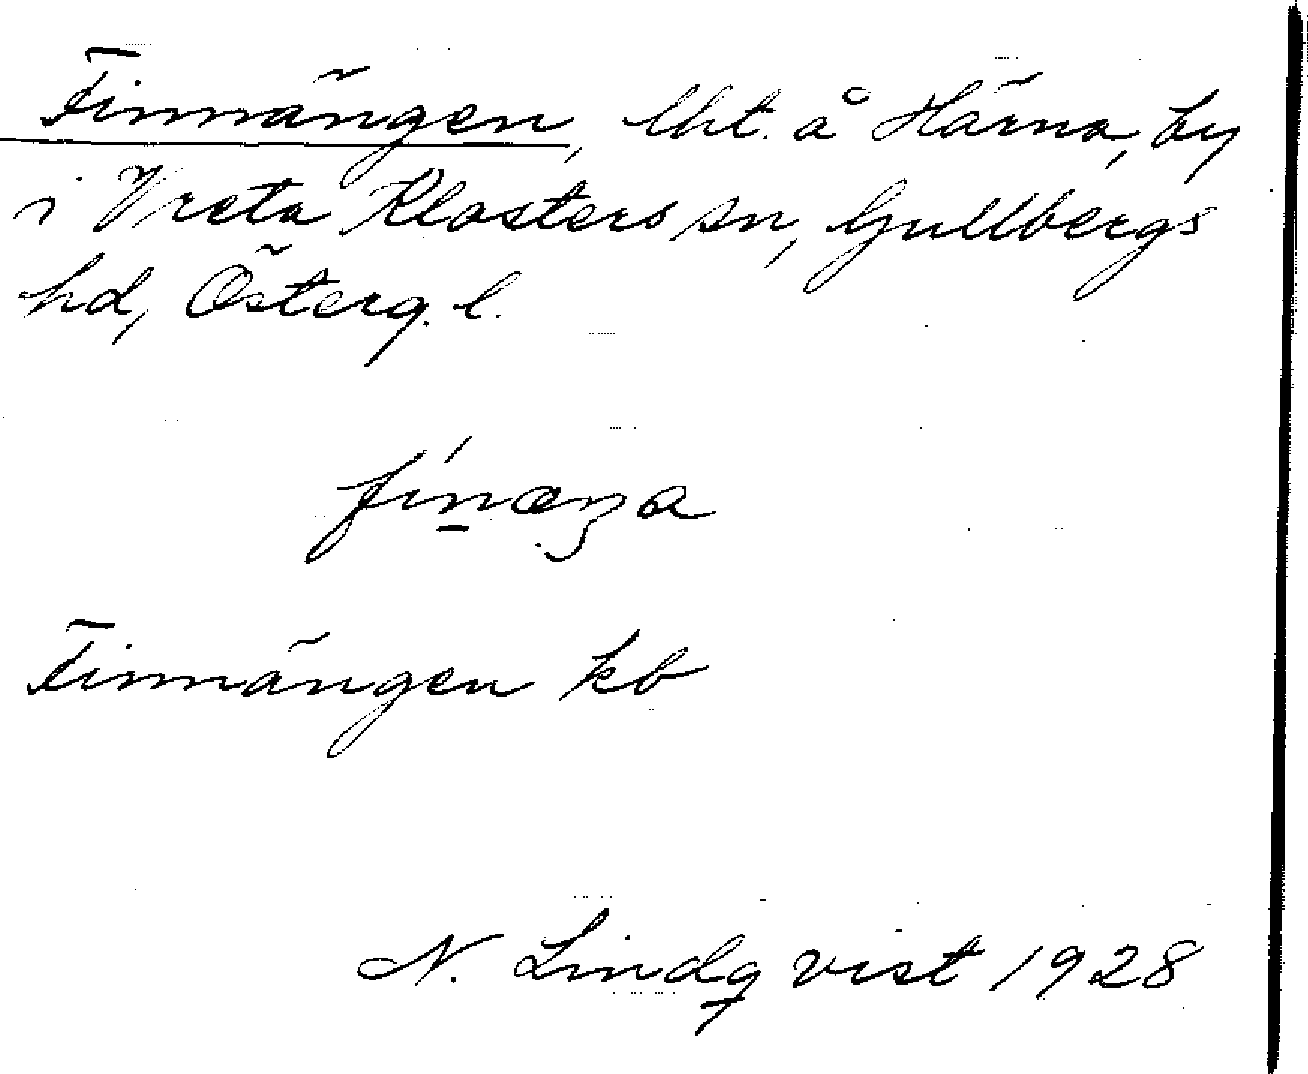 Finnängen, lht. å Härna, by
i Vreta Klosters sn, Gullbergs
hd, Österg. l.
fín̲æŋa
Finnängen kb
N. Lindqvist 1928